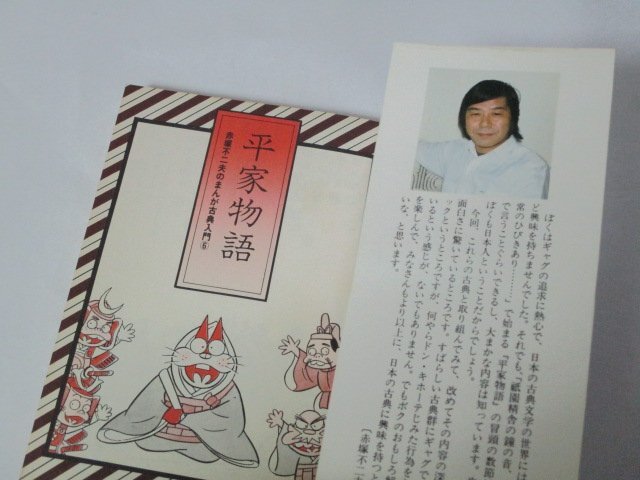 平家物語
赤塚不二夫のまんが古典入門⑥
ぼくはギャグの追求に熱心で、日本の古典文学の世界には
ど興味を持ちませんでした。それでも、「祇園精舎の鐘の音、
常のひびきあり……」で始まる『平家物語』の冒頭の数節
で言うことぐらいできるし、大まかな内容は知っています。
ぼくも日本人ということだからでしょう。
今回、これらの古典と取り組んでみて、改めてその内容の深
面白さに驚いているところです。すばらしい古典群にギャグで
ックというところですが、何やらドン・キホーテじみた行為を
いるという感じが、ないでもありません。でもボクのおもしろ
を楽しんで、みなさんもより以上に、日本の古典に興味を持つ
いな、と思います。
〔赤塚不二